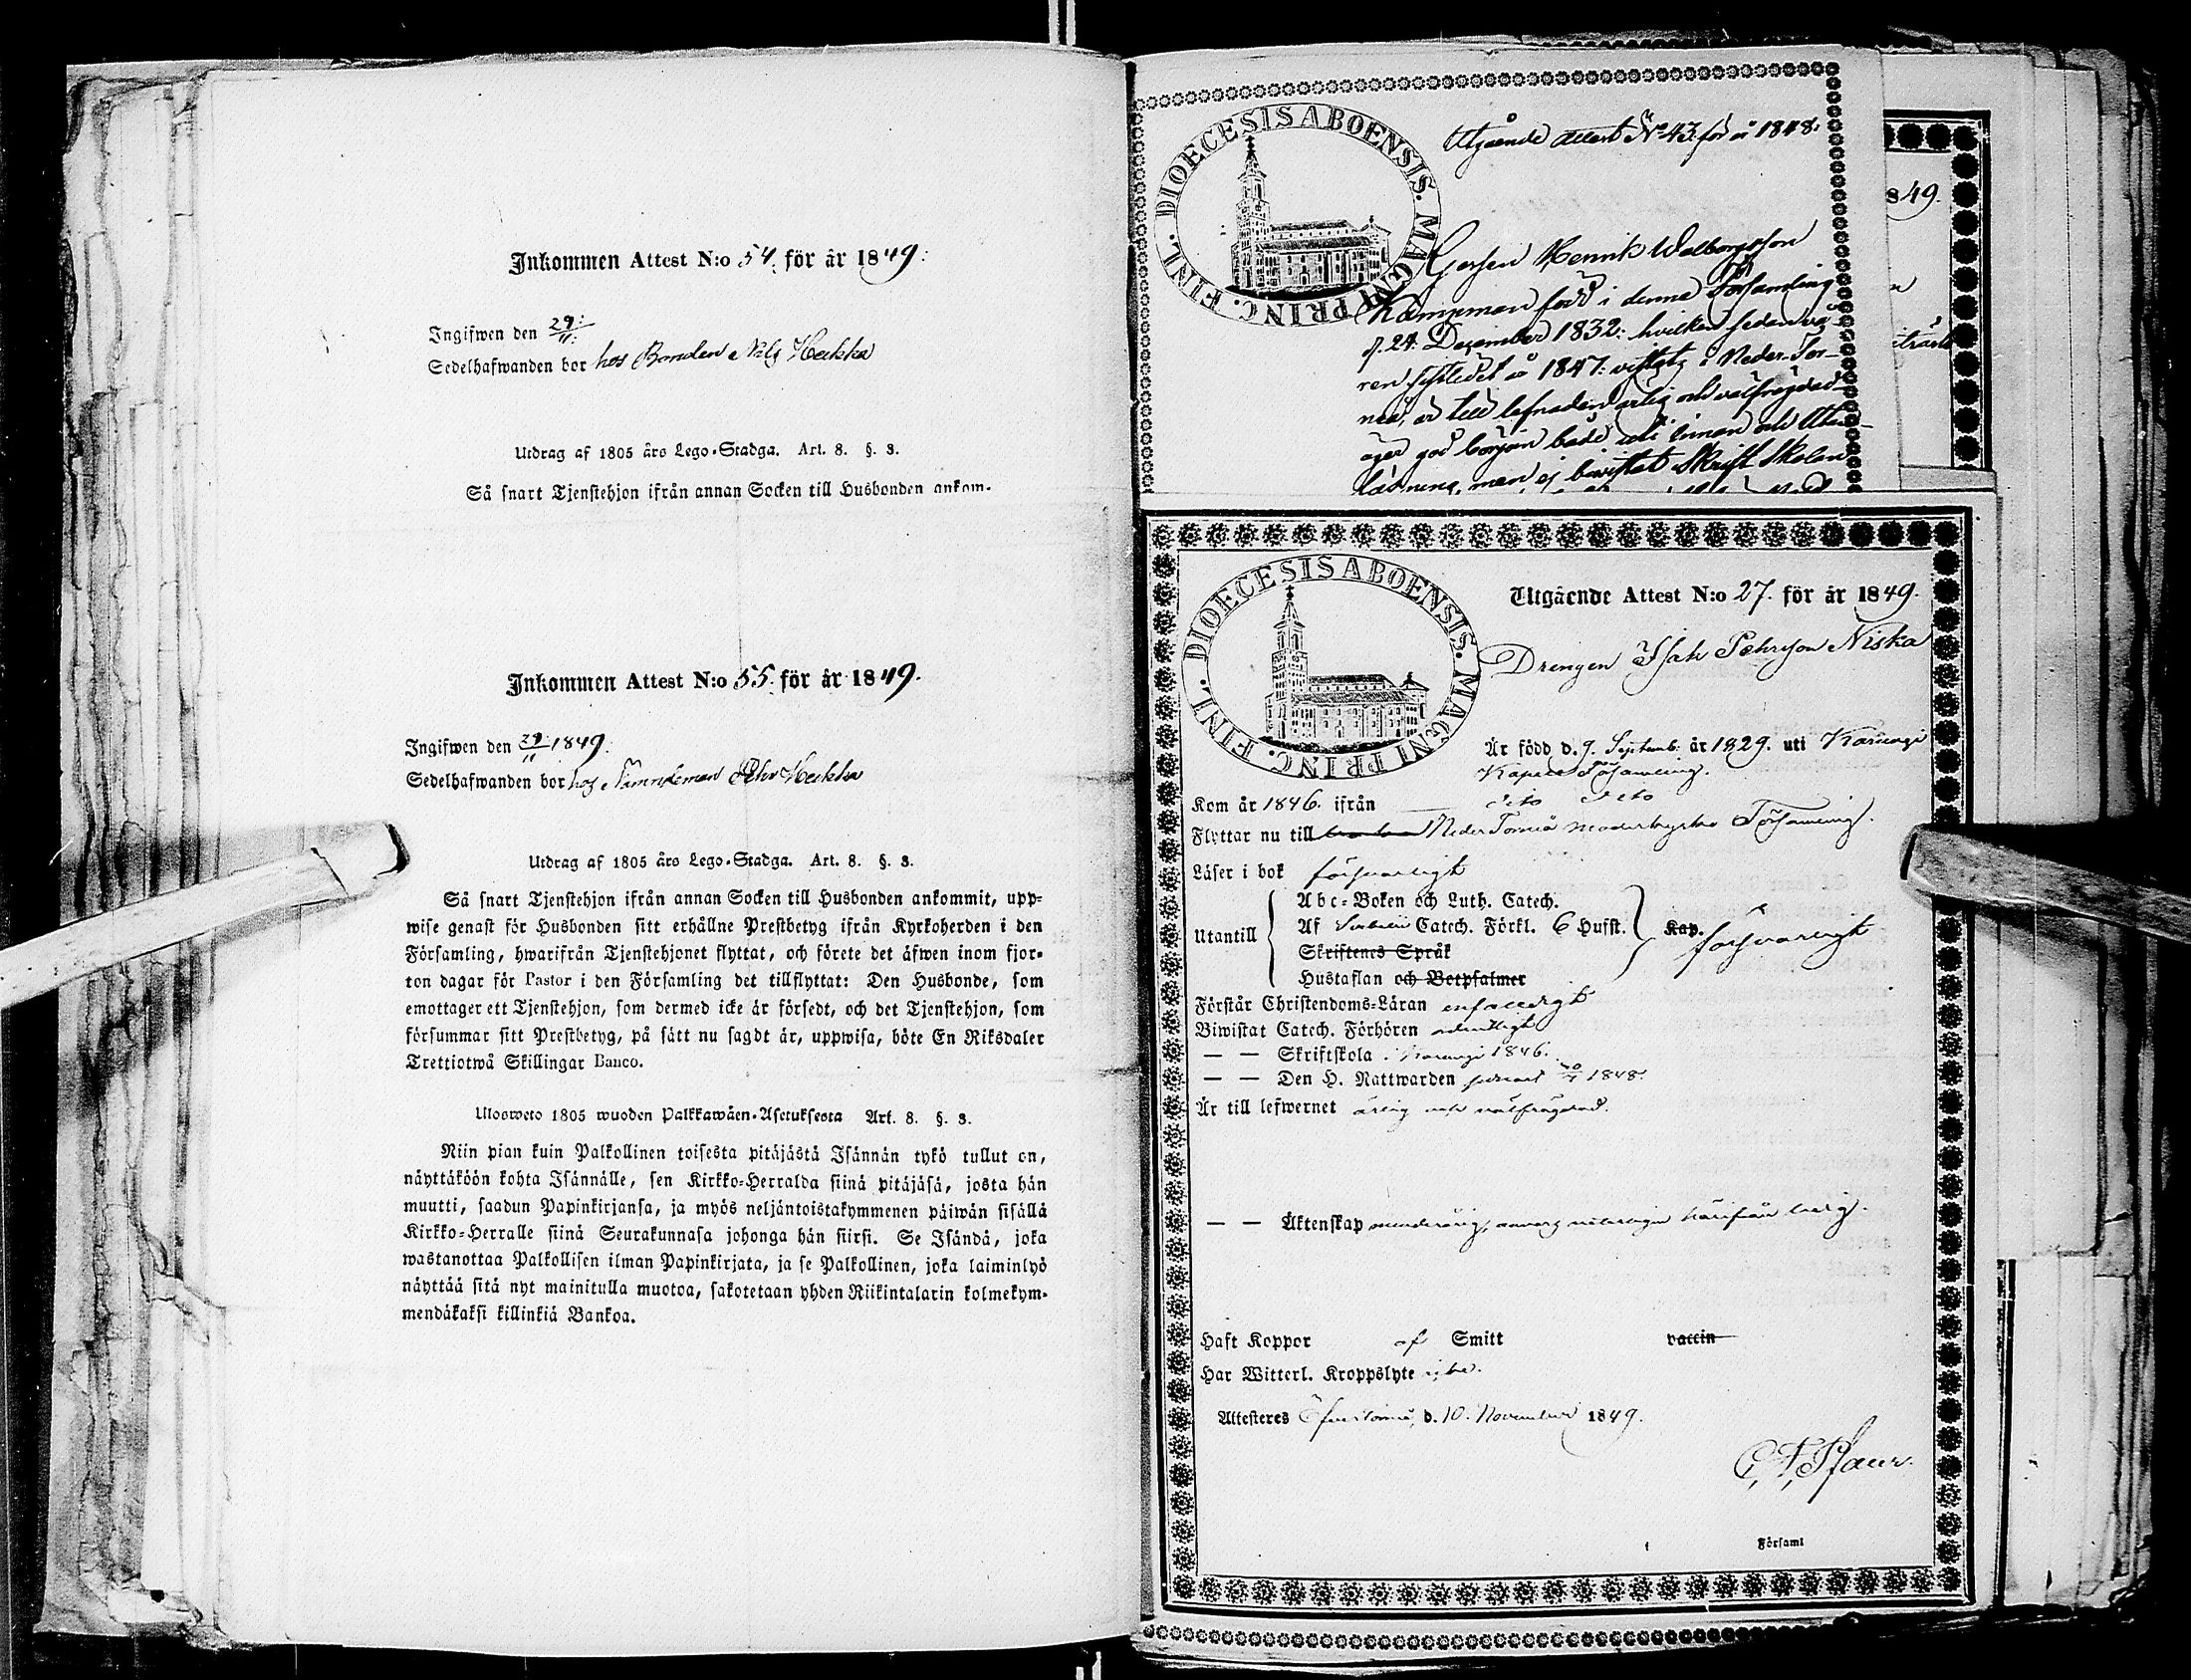 Inkommen Attest N:o 54. för år 1849.
Ingifwen den 29/11.
Sedelhafwanden bor hos Bonden Nils Heikka
Utdrag af 1805 års Lego-Stadga. Art. 8. §. 3.
Så snart Tjenstehjon ifrån annan Socken till Husbonden ankom-
Inkommen Attest N:o 55. för år 1849.
Ingifwen den 29/11 1849.
Sedelhafwanden bor hos Nämndeman Pehr Heikka
Utdrag af 1805 års Lego-Stadga. Art. 8. §. 3.
Så snart Tjenstehjon ifrån annan Socken till Husbonden ankommit, upp-
wise genast för Husbonden sitt erhållne Prestbetyg ifrån Kyrkoherden i den
Församling, hwarifrån Tjenstehjonet flyttat, och förete det äfwen inom fjor-
ton dagar för Pastor i den Församling det tillflyttat: Den Husbonde, som
emottager ett Tjenstehjon, som dermed icke är försedt, och det Tjenstehjon, som
försummar sitt Prestbetyg, på sätt nu sagdt är, uppwisa, böte En Riksdaler
Trettiotwå Skillingar Banco.
Ulosweto 1805 wuoden Palkkawäen-Asetuksesta Art. 8. §. 3.
Niin pian kuin Palkollinen toisesta pitäjästä Isännän tykö tullut on,
näyttäköön kohta Isännälle, sen Kirkko-Herralda siinä pitäjäsä, josta hän
muutti, saadun Papinkirjansa, ja myös neljäntoistakymmenen päiwän sisällä
Kirkko-Herralle siinä Seurakunnasa johonga hän siirsi. Se Isändä, joka
wastanottaa Palkollisen ilman Papinkirjata, ja se Palkollinen, joka laiminlyö
näyttää sitä nyt mainitulla muotoa, sakotetaan yhden Riikintalarin kolmekym-
mendäkaksi killinkiä Bankoa.
DIOECESIS ABOENSIS. MAGNI PRINC. FINL.
Utgående Attest No 43. för år 1848.
Gossen Henrik Walborgsson
Kämpman född i denna Församling
d. 24. Dezember 1832: hvilken sedan vå-
ren sistledet år 1847. vistats i Neder-Tor-
neå, är till lefnaden ärlig och välfrägdad
äger god början både uti innan och Utan-
läsning, men ej bevistat Skrift Skolan
849.
DIOECESIS ABOENSIS. MAGNI PRINC. FINL.
Utgående Attest N:o 27. för år 1849.
Drengen Isak Pehrson Niska
Är född d. 9. Septemb. år 1829. uti Karungi
Kapell Församling.
Kom år 1846. ifrån dito dito
Flyttar nu till Neder Torneå moderkyrko Församling.
Läser i bok försvarligt
Utantill
Abc-Boken och Luth. Catech.
Af Svebelii Catech. Förkl. 6 Hufst. Kap. försvarligt
Skriftenes Språk
Hustaflan och Botpsalmer
Förstår Christendoms-Läran enfalldigt
Biwistat Catech. Förhören ordentligt
— — Skriftskola i Karungi 1846.
— — Den H. Nattwarden 1848.
Är till lefwernet ärlig och välfrägdad.
— — Äktenskap minderårig, härifrån ledig.
Haft Koppor af Smitt vaccin
Har Witterl. Kroppslyte icke.
Attesteres Öfver Torneå, d. 10. November 1849.
Församl